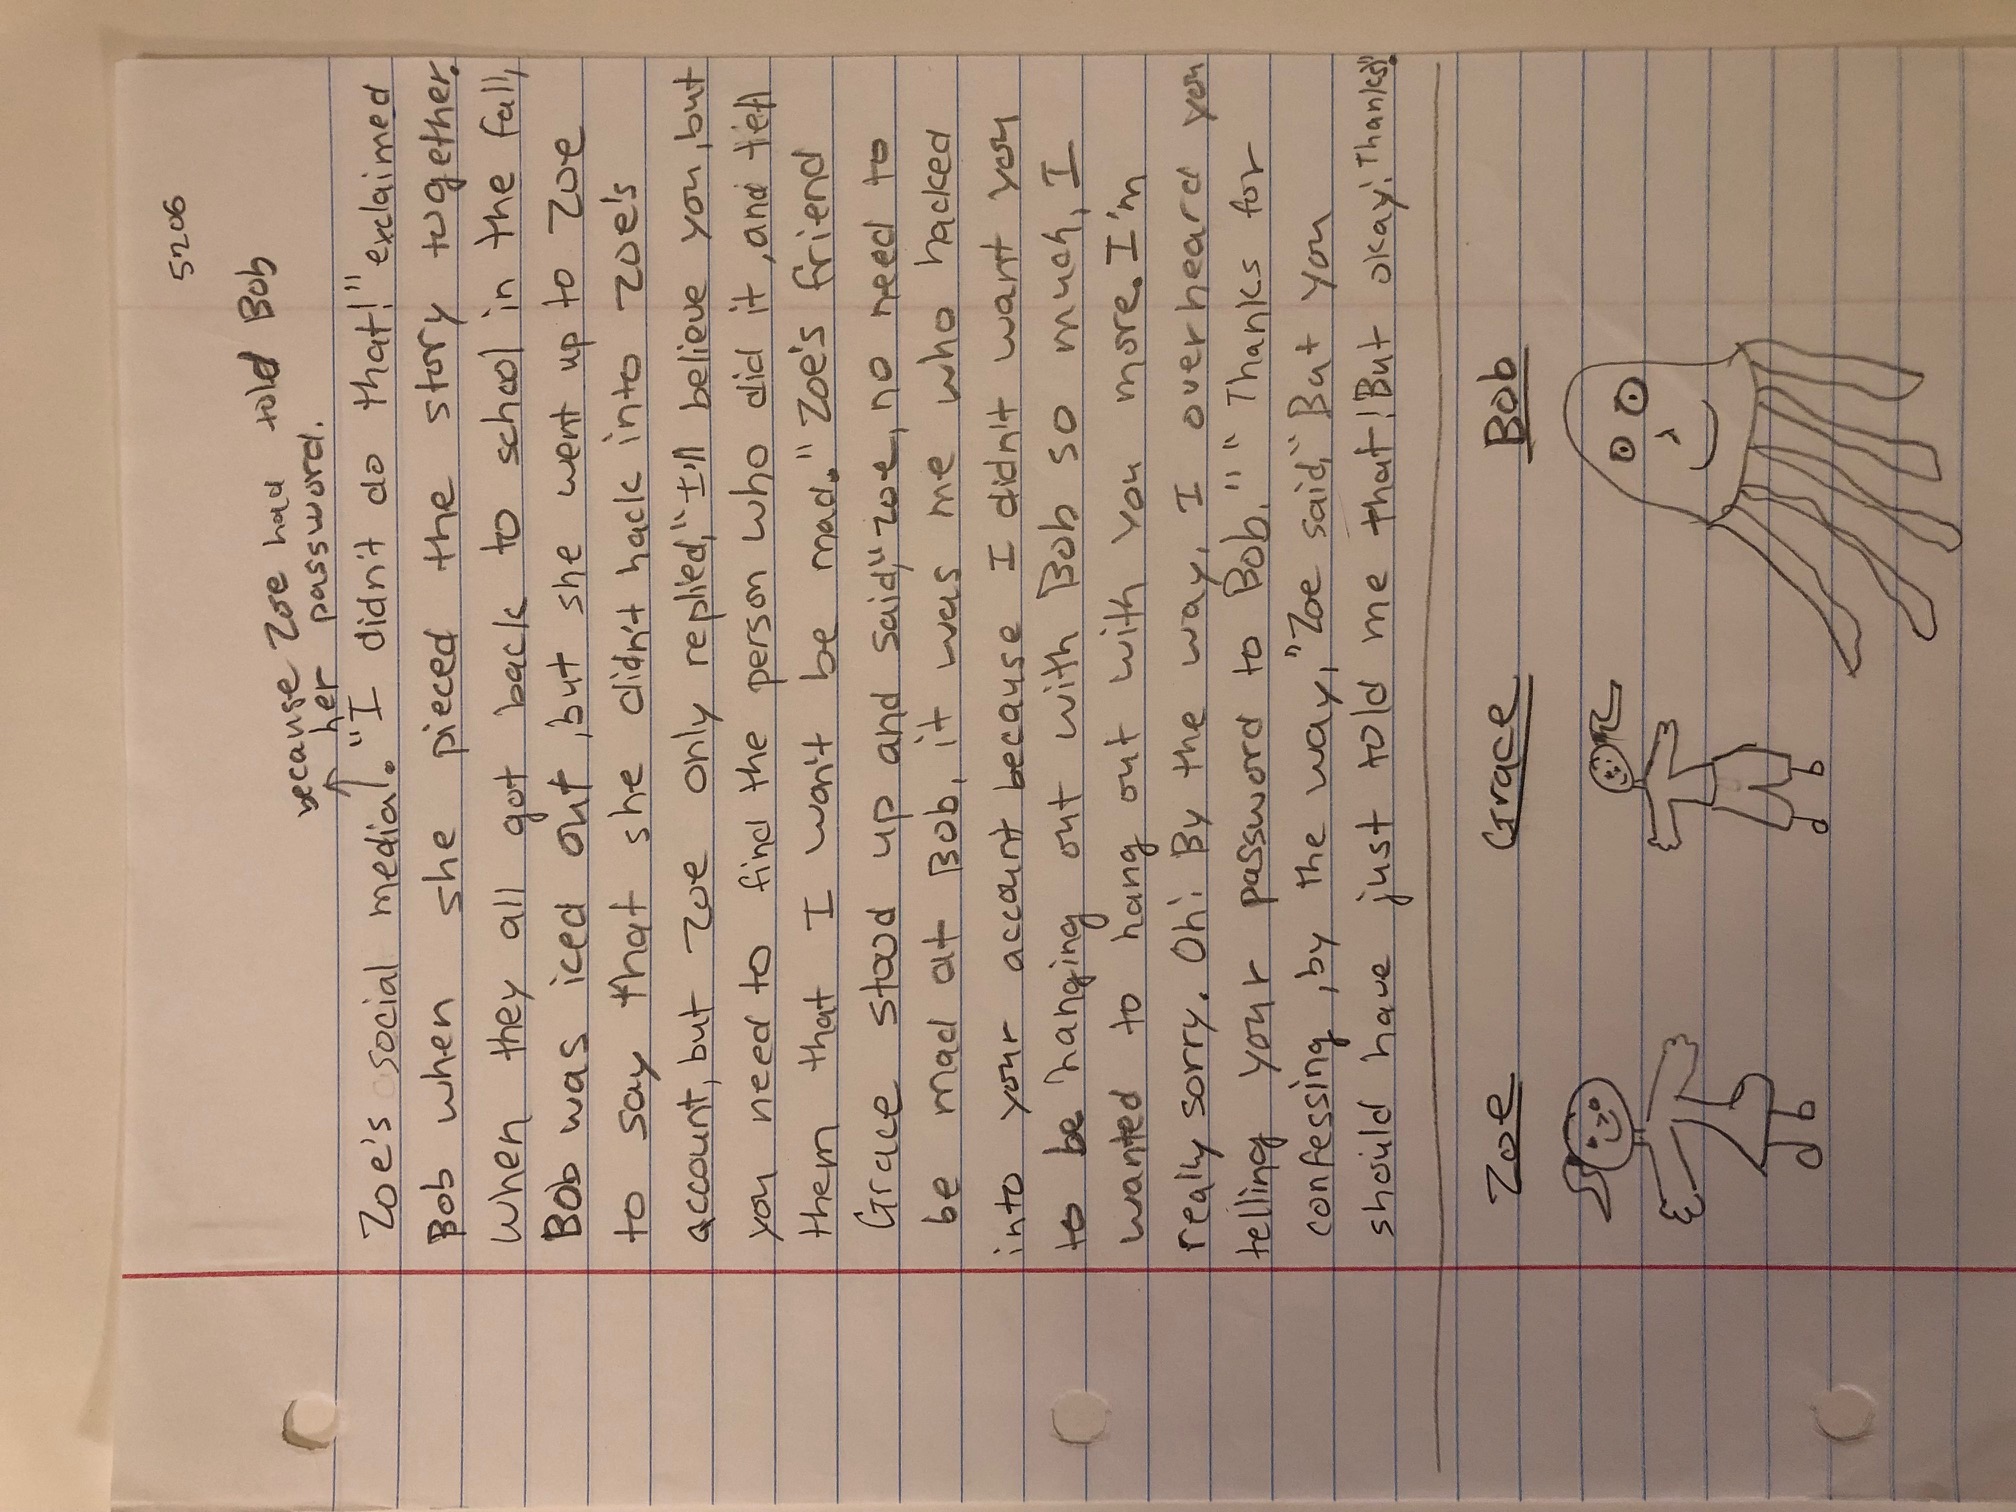 5206
because Zoe had told Bob
her password.
Zoe's social media. "I didn't do that!" exclaimed
Bob when she pieced the story together.
When they all got back to school in the fall,
Bob was iced out, but she went up to Zoe
to say that she didn't hack into Zoe's
account, but Zoe only replied, "I'll believe you, but
you need to find the person who did it, and tell
them that I won't be mad." Zoe's friend
Grace stood up and said, "Zoe, no need to
be mad at Bob, it was me who hacked
into your account because I didn't want you
to be hanging out with Bob so much, I
wanted to hang out with you more. I'm
really sorry. Oh! By the way, I overheard you
telling your password to Bob." "Thanks for
confessing, by the way," Zoe said, "But you
should have just told me that! But okay! Thanks!"
Zoe Grace Bob